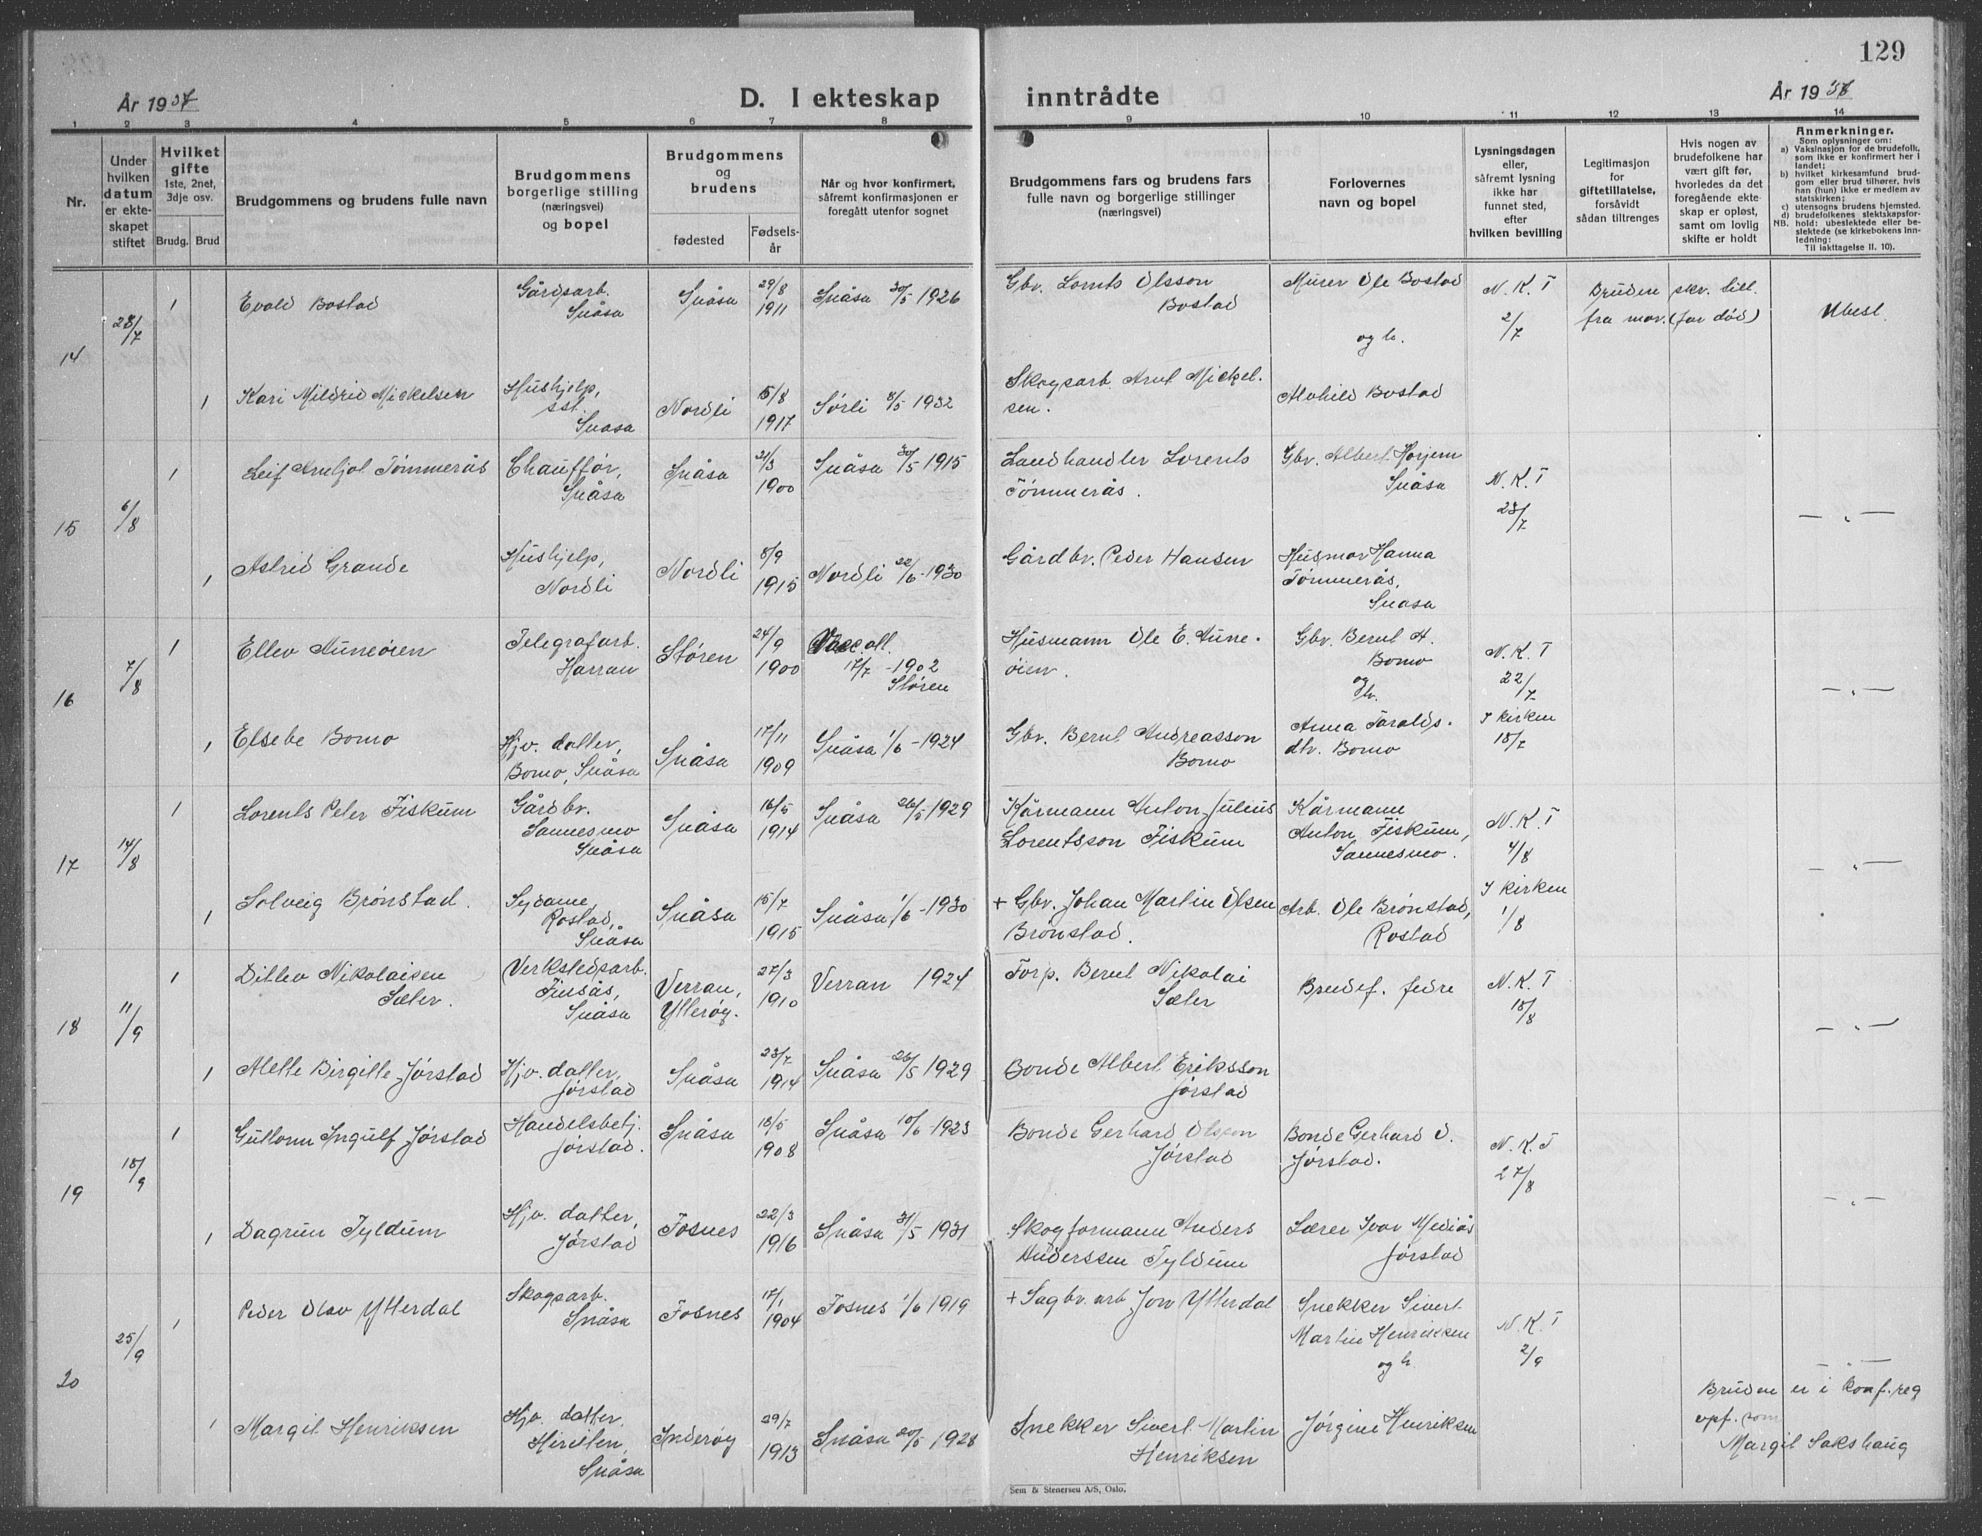 129
År 1937
D. I ekteskap inntrådte
År 1937
1 2 3 4 5 6 7 8 9 10 11 12 13 14
Nr.
Under hvilken datum er ekteskapet stiftet
Hvilket gifte 1ste, 2net, 3dje osv.
Brudg. Brud
Brudgommens og brudens fulle navn
Brudgommens borgerlige stilling (næringsvei) og bopel
Brudgommens og brudens
fødested
Fødselsår
Når og hvor konfirmert, såfremt konfirmasjonen er foregått utenfor sognet
Brudgommens fars og brudens fars fulle navn og borgerlige stillinger (næringsvei)
Forlovernes navn og bopel
Lysningsdagen eller, såfremt lysning ikke har funnet sted, efter hvilken bevilling
Legitimasjon for giftetillatelse, forsåvidt sådan tiltrenges
Hvis nogen av brudefolkene har vært gift før, hvorledes da det foregående ekteskap er opløst, samt om lovlig skifte er holdt
Anmerkninger.
Som oplysninger om:
a) Vaksinasjon for de brudefolk, som ikke er konfirmert her i landet;
b) hvilket kirkesamfund brudgom eller brud tilhører, hvis han (hun) ikke er medlem av statskirken;
c) utensogns brudens hjemsted.
d) brudefolkenes slektskapsforhold: ubeslektede eller beslektede (se kirkebokens innledning:
NB.
Til iakttagelse II. 10).
14 28/7 1 Evald Bostad Gårdsarb. Snåsa Snåsa 29/8 1911 Snåsa 30/5 1926 Gbr. Lornts Olsson Bostad Murer Ole Bostad og h. N. K. T 2/7 Bruden skr. till. fra mor. (far død) Ubesl.
1 Kari Mildrid Mickelsen Hushjelp, sst. Snåsa Nordli 5/8 1917 Sørli 8/5 1932 Skogsarb. Arnt Mickelsen. Alvhild Bostad
15 6/8 1 Leif Arnljot Tømmerås Chauffør, Snåsa Snåsa 21/3 1900 Snåsa 30/5 1915 Landhandler Lorents Tømmerås. Gbr. Albert Horjem Snåsa N. K. T 23/7 — „ —
1 Astrid Grande Hushjelp, Nordli Nordli 8/9 1915 Nordli 22/6 - 1930 Gårdbr. Peder Hansen Husmor Hanna Tømmerås, Snåsa
16 7/8 1 Ellev Auneøien Telegrafarb. Harran Støren 24/9 1900 Vacc. att. 17/7 - 1902 Støren Husmann Ole E. Auneøien. Gbr. Bernt A. Bomo og h. N. K. T 22/7 — „ —
1 Elsebe Bomo Hjv. datter, Bomo, Snåsa Snåsa 17/11 1909 Snåsa 1/6 - 1924 Gbr. Bernt Andreasson Bomo Anna Taraldsdtr. Bomo I kirken 18/7
17 14/8 1 Lorents Peter Fiskum Gårdbr. Sannesmo Snåsa Snåsa 16/5 1914 Snåsa 26/5 1929 Kårmann Anton Julius Lorentsson Fiskum Kårmann Anton Fiskum, Sannesmo. N. K. T 4/8 — „ —
1 Solveig Brønstad. Sydame, Rostad, Snåsa Snåsa 15/7 1915 Snåsa 1/6 - 1930 + Gbr. Johan Martin Olsen Brønstad. Arb. Ole Brønstad, Rostad I kirken 1/8
18 11/9 1 Ditlev Nikolaisen Sæter. Verkstedsarb. Finsås, Snåsa Verran, Ytterøy. 27/3 1910 Verran 1924 Forp. Bernt Nikolai Sæter Brudef. fedre N. K. T 18/8 — „ —
1 Alette Birgitte Jørstad Hjv. datter, Jørstad Snåsa 23/7 1914 Snåsa 26/5 1929 Bonde Albert Eriksson Jørstad
19 18/9 1 Guttorm Ingulf Jørstad Handelsbetj. Jørstad. Snåsa 18/5 1908 Snåsa 10/6 - 1923 Bonde Gerhard Olsson Jørstad Bonde Gerhard O. Jørstad. N. K. T 27/8 — „ —
1 Dagrun Tyldum Hjv. datter, Jørstad Fosnes 22/3 1916 Snåsa 31/5 1931 Skogformann Anders Anderssen Tyldum Lærer Ivar Mediås Jørstad
20 25/9 1 Peder Olav Ytterdal Skogsarb. Snåsa Fosnes 17/1 1904 Fosnes 1/6 1919 + Sagbr. arb Jon Ytterdal Snekker Sivert Martin Henriksen og h. N. K. T 2/9 — „ —
1 Margit Henriksen Hjv. datter, Snåsa Inderøy 29/7 1913 Snåsa 20/5 1928 Snekker Sivert Martin Henriksen Jørgine Henriksen Bruden er i konf. reg opf. som Margit Sakshaug
Sem & Stenersen A/S, Oslo.